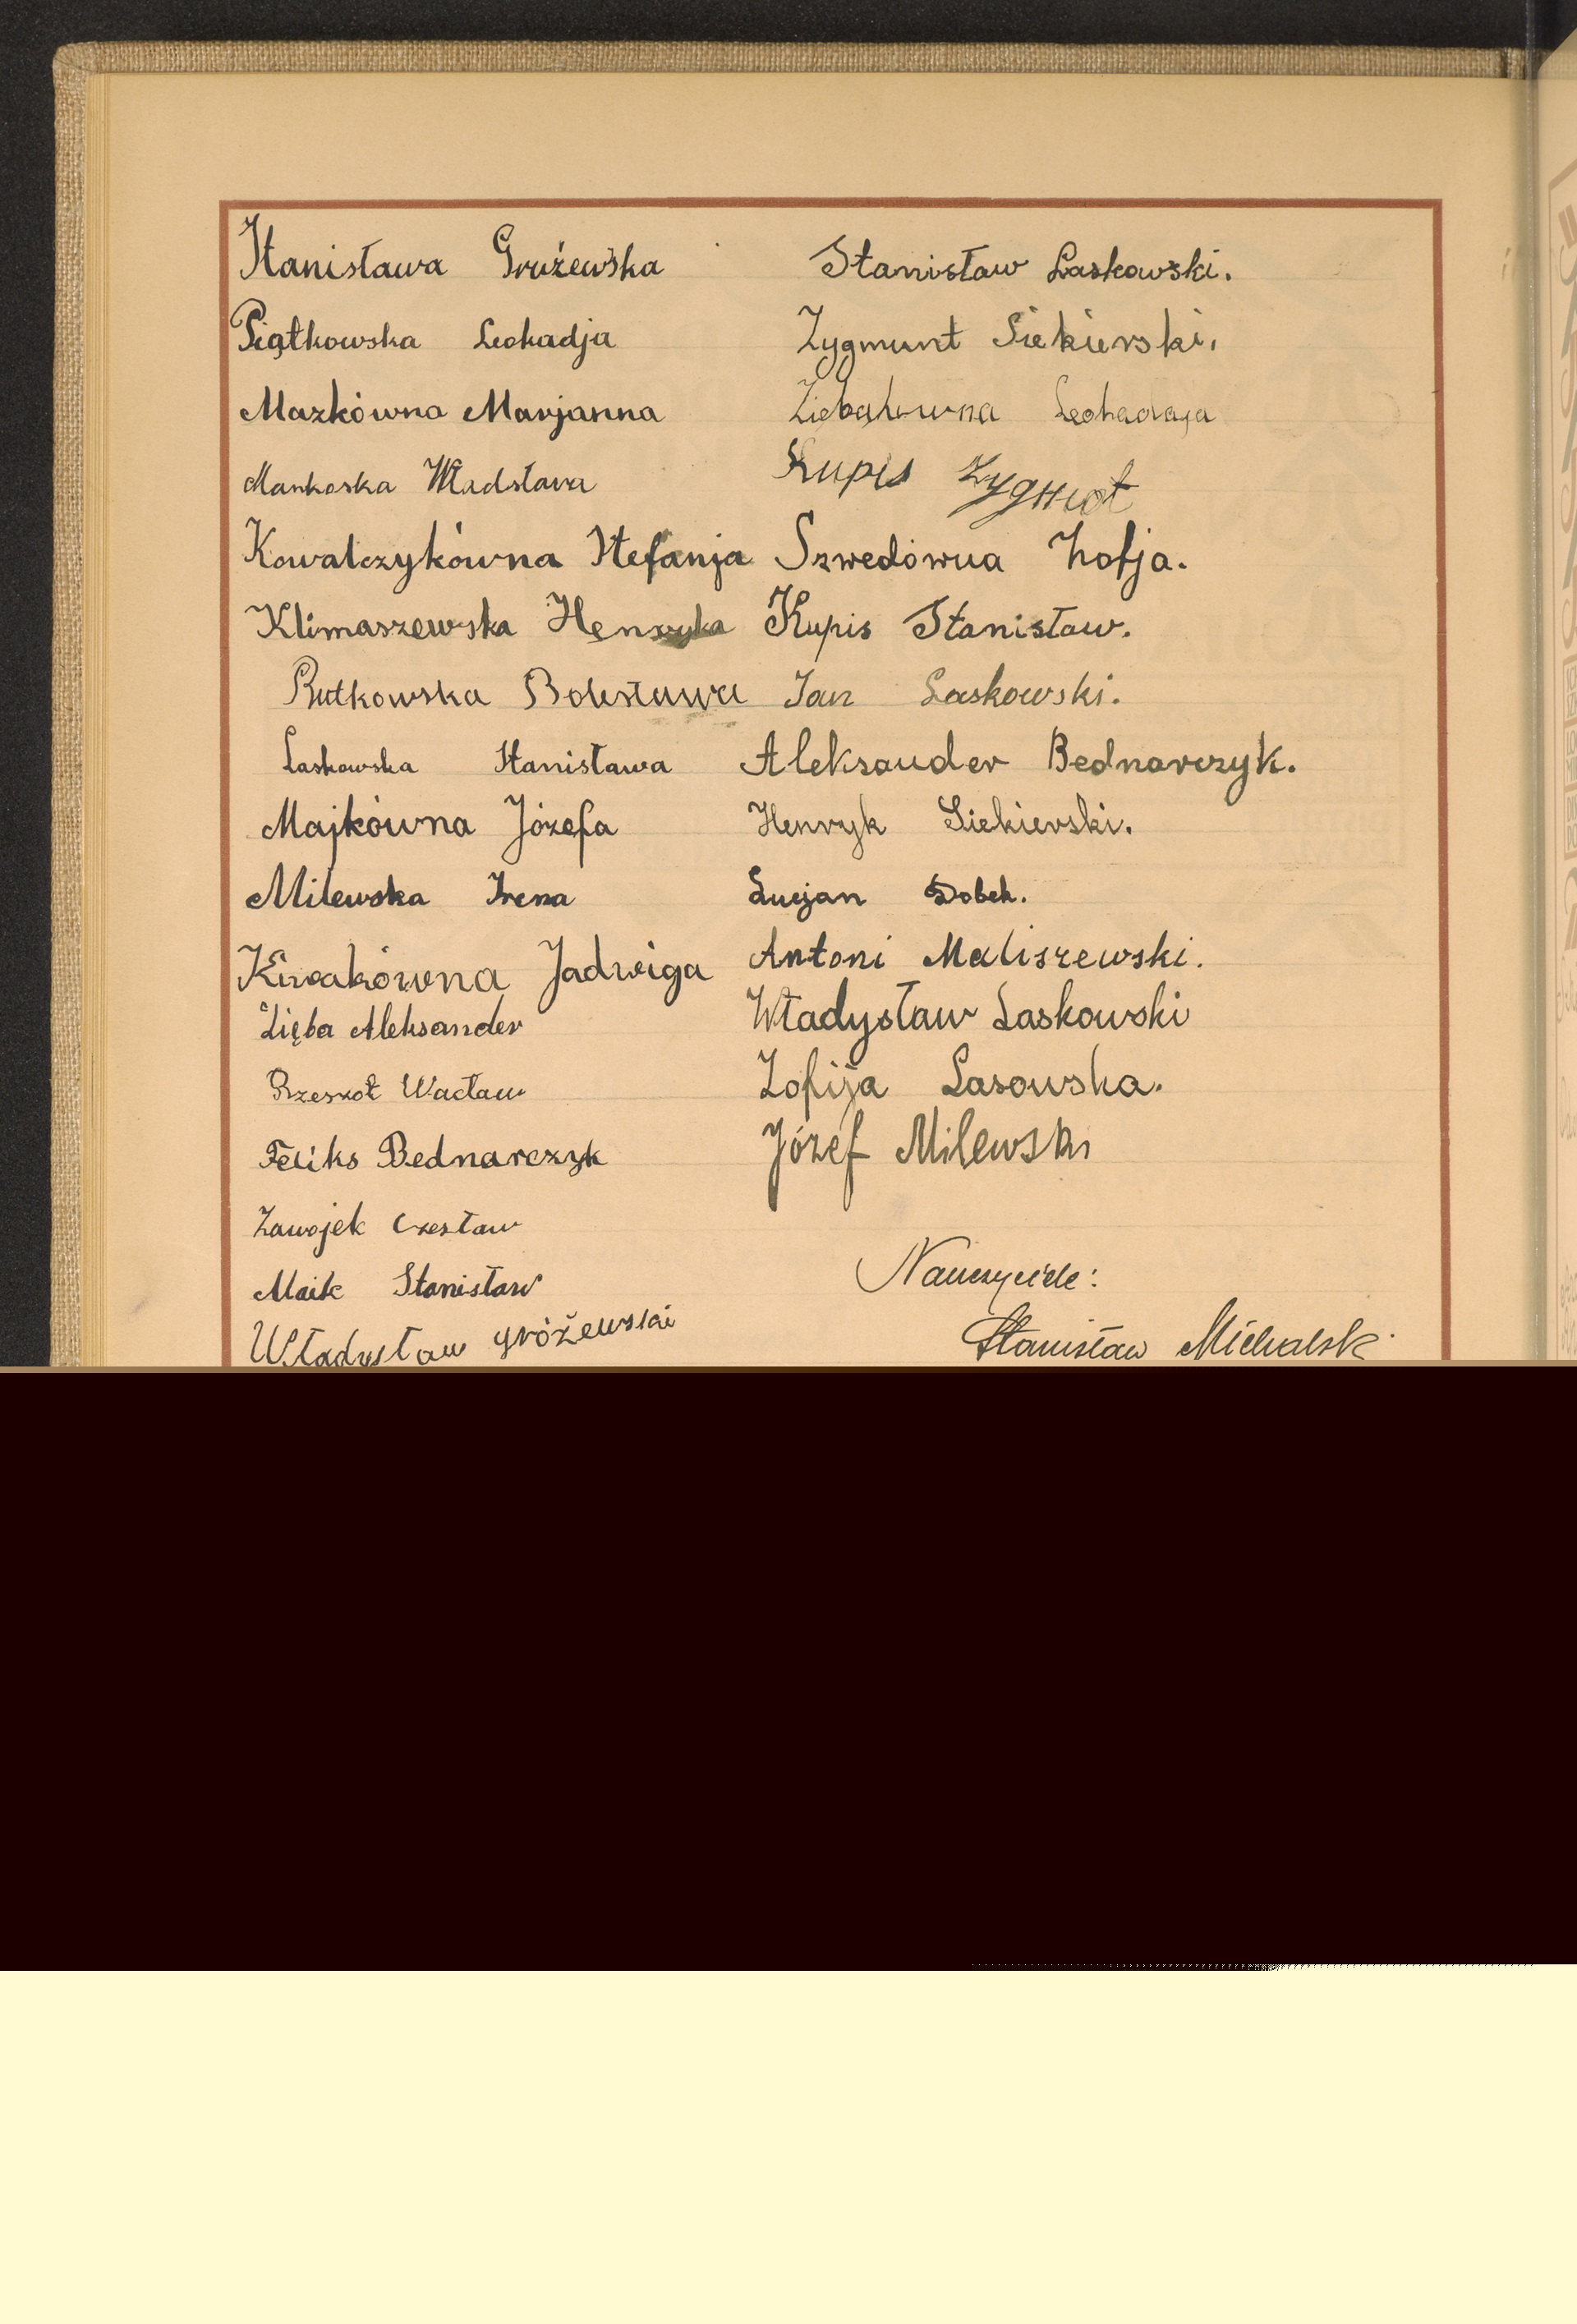 Stanisława Grużewska
Piątkowska Leokadja
Mazkówna Marjanna
Mankoska Władsława
Kowalczykówna Stefanja
Klimaszewska Henryka
Rutkowska Bolesława
Laskowska Stanisława
Majkówna Józefa
Milewska Irena
Jadwiga
Zięba Aleksander
Rzeszot Wacław
Feliks Bednarczyk
Zawojek Czesław
Maik Stanisław
Władysław Gróżewski
Stanisław Laskowski.
Zygmunt Siekierski.
Kupis
Szwedówna Zofja.
Kupis Stanisław.
Jan Laskowski.
Aleksander Bednarczyk.
Henryk Siekierski.
Lucjan Dobek.
Antoni Maliszewski.
Władysław Laskowski
Zofija Lasowska.
Józef Milewski
Nauczyciele:
Stanisław Michalski